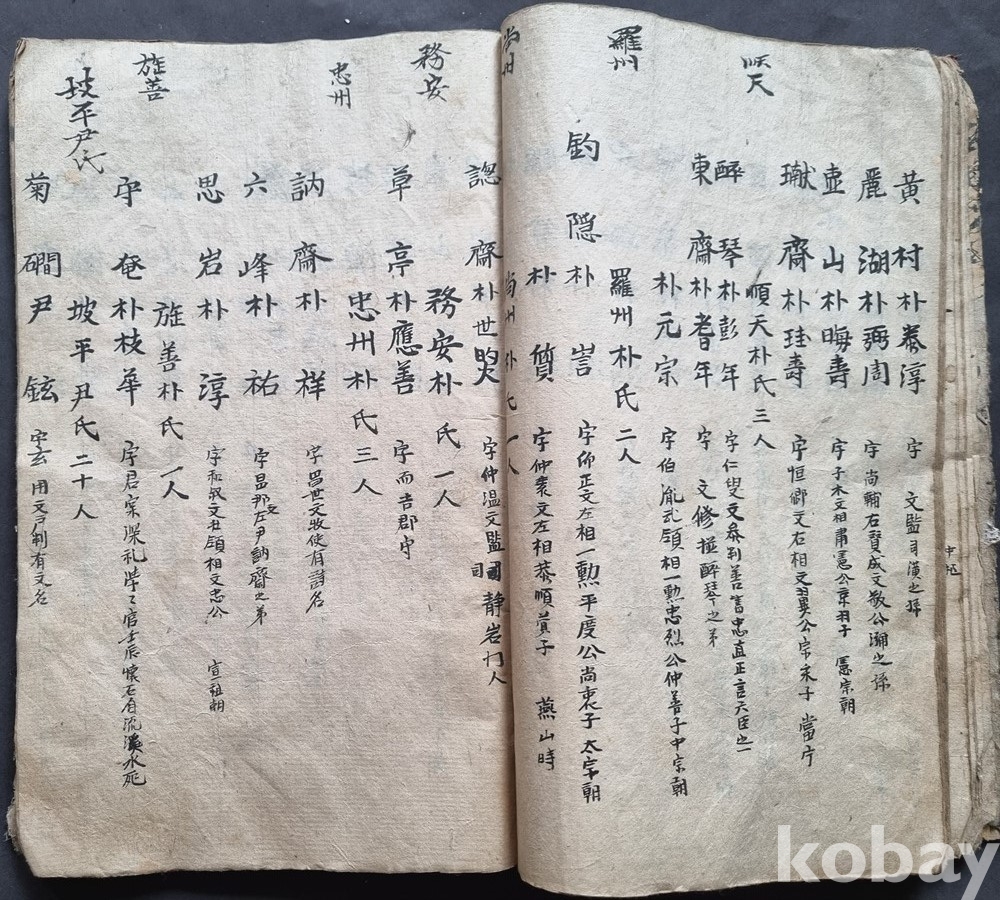 順天
黃村朴泰淳 字 文監司潢之孫
麗湖朴弼周 字尚輔右贊成文敬公瀰之孫
壺山朴晦壽 字子木文相肅憲公宗羽子 憲宗朝
瓛齋朴珪壽 字恒卿文右相文翼公宗禾子 當宁
順天朴氏三人
醉琴朴彭年 字仁叟文參判善書忠直正言六臣之一
東齋朴耆年 字 文修撰醉琴之弟
朴元宗 字伯胤武領相一勳忠烈公仲善子中宗朝
羅州
羅州朴氏二人
釣隱朴訔 字仰正文左相一勳平度公尚衷子太宗朝
朴質 字仲襄文左相恭順賁子 燕山時
尚州
尚州朴氏一人
諰齋朴世煛 字仲溫文監司靜岩門人
務安
務安朴氏一人
草亭朴應善 字而吉郡守
忠州
忠州朴氏三人
訥齋朴祥 字昌世文牧使有詩名
六峰朴祐 字昌邦文左尹訥齋之弟
思岩朴淳 字和叔文壯領相文忠公 宣祖朝
旌善
旌善朴氏一人
守菴朴枝華 字君實深礼學官壬辰懷石自沉溪水死
坡平尹氏
坡平尹氏二十人
菊磵尹鉉 字 用文戶判有文名
中北
kobay